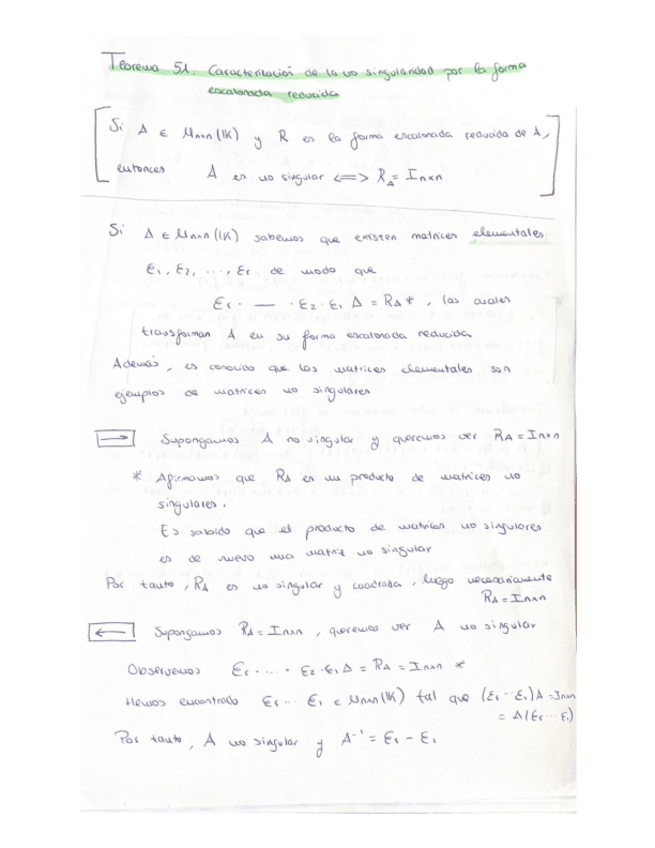 Teorema 51. Caracterización de la no singularidad por la forma
escalonada reducida
Si A ∈ Mnxn(IK) y R es la forma escalonada reducida de A,
entonces A es no singular <=> R_A = Inxn
Si A ∈ Mnxn(IK) sabemos que existen matrices elementales
E1, E2, ..., Er de modo que
Er · — · E2 · E1 A = RA *, las cuales
transforman A en su forma escalonada reducida
Además, es conocido que las matrices elementales son
ejemplos de matrices no singulares
→ Supongamos A no singular y queremos ver RA = Inxn
* Afirmamos que RA es un producto de matrices no
singulares.
Es sabido que el producto de matrices no singulares
es de nuevo una matriz no singular
Por tanto, RA es no singular y cuadrada, luego necesariamente
RA = Inxn
← Supongamos RA = Inxn, queremos ver A no singular
Observemos Er · ... · E2 · E1 A = RA = Inxn *
Hemos encontrado Er ... E1 ∈ Mnxn(IK) tal que (Er ... E1) A = Inxn
= A(Er ... E1)
Por tanto, A no singular y A⁻¹ = Er — E1